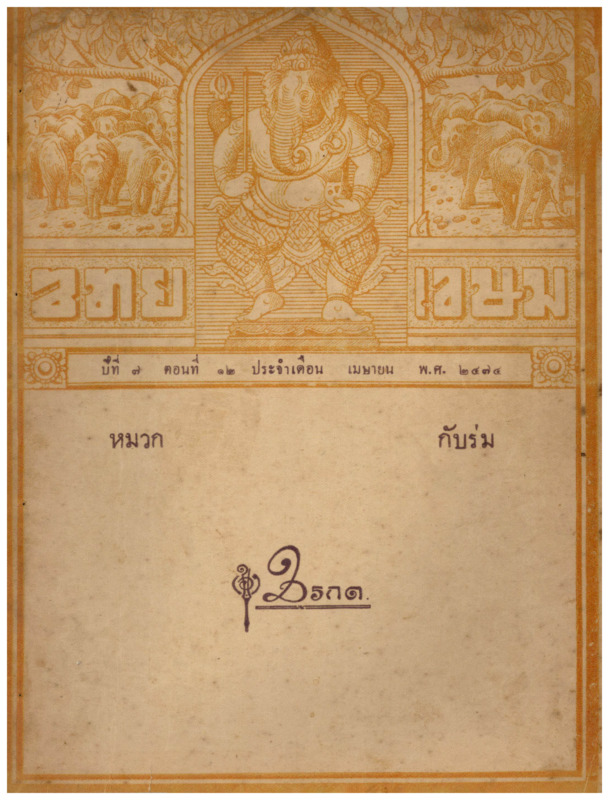 ไทย เขษม
ปีที่ ๗ ตอนที่ ๑๒ ประจำเดือน เมษายน พ.ศ. ๒๔๗๔
หมวก กับร่ม